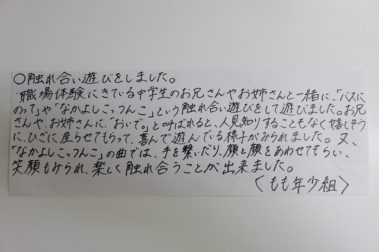 ○触れ合い遊びをしました。
職場体験にきている中学生のお兄さんやお姉さんと一緒に、「バスに
のって」や「なかよしこっつんこ」という触れ合い遊びをして遊びました。お兄
さんや、お姉さんに、「おいで。」と呼ばれると、人見知りすることもなく嬉しそう
に、ひざに座らせてもらって、喜んで遊んでいる様子がみられました。又、
「なかよしこっつんこ」の曲では、手を繋いだり、顔と顔をあわせてもらい、
笑顔もみられ、楽しく触れ合うことが出来ました。
〈もも年少組〉